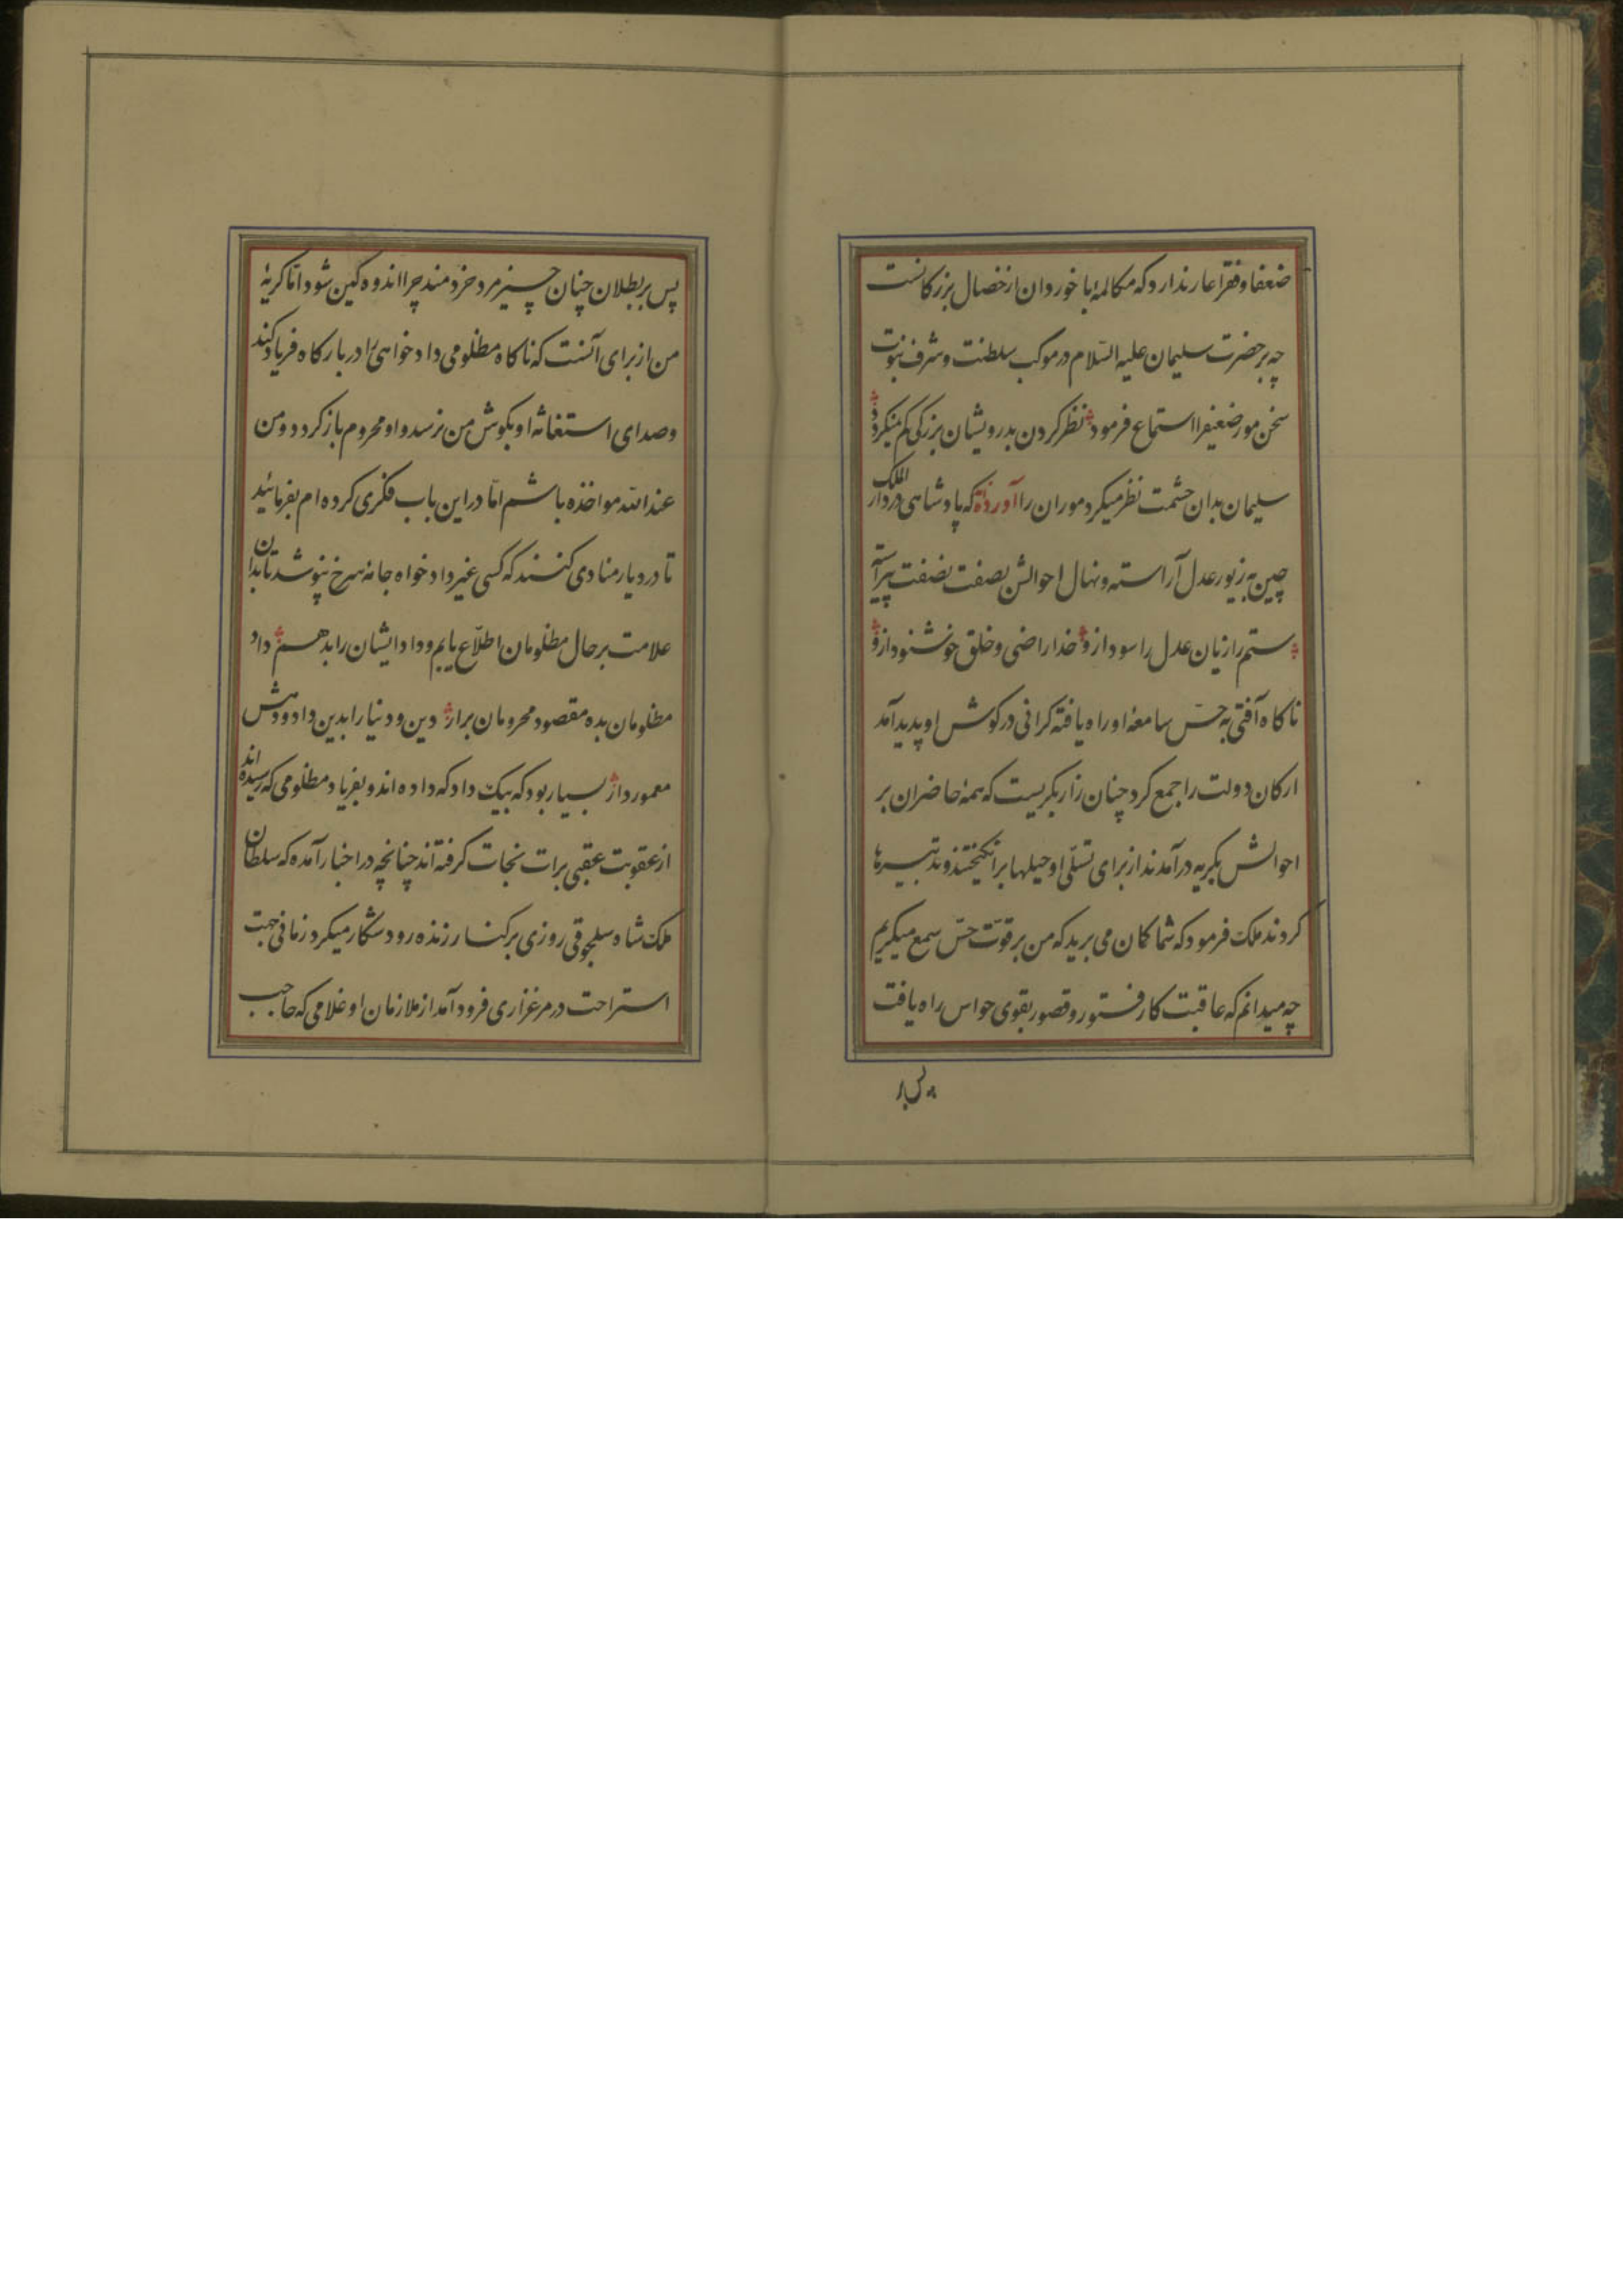 ضعفا و فقرا عار ندارد که مکالمه با خوردان از خصال بزرکانست
چه بر حضرت سلیمان علیه السّلام در موکب سلطنت و شرف نبوت
سخن مور ضعیفرا استماع فرمود نظر کردن بدرویشان بزرکی کم نیکرد
سلیمان بدان حشمت نظر میکرد موران را آورده که پادشاهی در دار الملک
چین به زیور عدل آراسته و نهال احوالش بصفت نصفت پیراسته
ستم را زیان عدل را سود ازو خدا راضی و خلق خوشنود ازو
ناکاه آفتی به حسّ سامعه او راه یافته کرانی در کوش او پدید آمد
ارکان دولت را جمع کرد چنان زار بکریست که همه حاضران بر
احوالش بکریه درآمدند از برای تسلّی او حیلها برانکیختند و تدبیرها
کردند ملک فرمود که شما کمان می برید که من بر قوّت حسّ سمع میکریم
چه میدانم که عاقبت کار فتور و قصور بقوی حواس راه یافت
پس بر
پس بر بطلان چنان چیز مرد خردمند چرا اندوه کین شود امّا کریهٔ
من از برای آنست که ناکاه مظلومی داد خواهی را در بارکاه فریاد کند
و صدای استغاثه او بکوش من نرسد و او محروم باز کردد و من
عند الله مواخذه باشم امّا در این باب فکری کرده ام بفرمائید
تا در دیار منادی کنند که کسی غیر داد خواه جامه سرخ نپوشد تا بدان
علامت بر حال مظلومان اطلّاع یابم و داد ایشان را بدهم داد
مظلومان بده مقصود محرومان برار دین و دنیا را بدین داد و دهش
معمور دار بسیار بود که بیک داد که داده اند و بفریاد مظلومی که رسیده اند
از عقوبت عقبی برات نجات کرفته اند چنانچه در اخبار آمده که سلطان
ملک شاه سلجوقی روزی بر کنار زنده رود شکار میکرد زمانی جهت
استراحت در مرغزاری فرود آمد از ملازمان او غلامی که حاجب